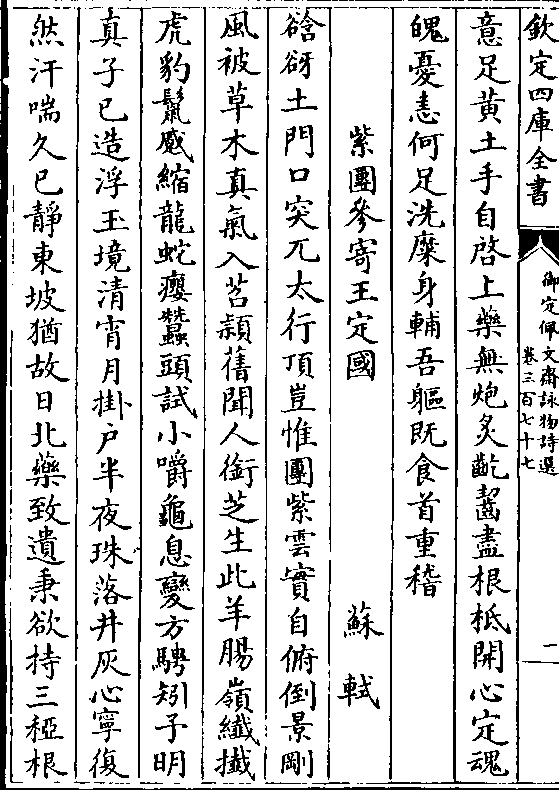 欽定四庫全書
御定佩文齋詠物詩選
卷三百七十七
一
意足黃土手自啓上藥無炮炙齕齧盡根柢開心定魂
魄憂恚何足洗糜身輔吾軀既食首重稽
紫團參寄王定國
蘇軾
谽谺土門口突兀太行頂豈惟團紫雲實自俯倒景剛
風被草木真氣入苕穎舊聞人銜芝生此羊腸嶺纖攕
虎豹鬛蹙縮龍蛇癭蠶頭試小嚼龜息變方騁矧予明
真子已造浮玉境清宵月掛户半夜珠落井灰心寧復
然汗喘久已靜東坡猶故日北藥致遺秉欲持三椏根